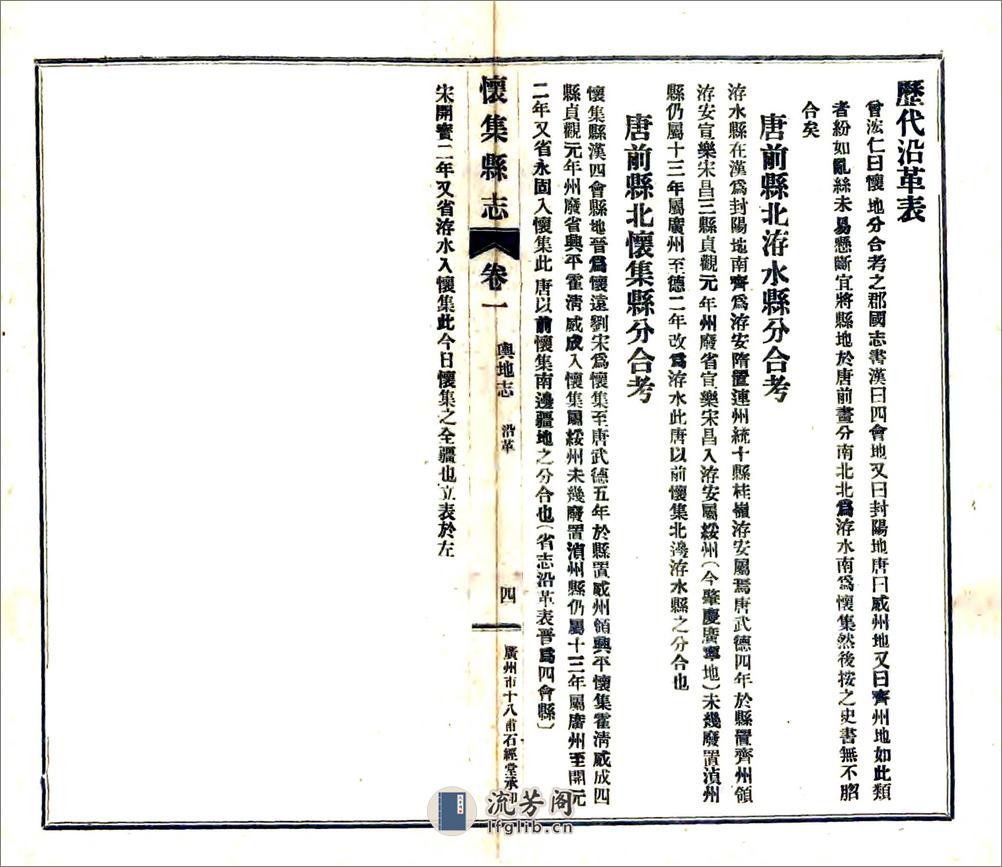 歷代沿革表
曾浤仁曰懷地分合考之郡國志書漢曰四會地又曰封陽地唐曰威州地又曰齊州地如此類
者紛如亂絲未易懸斷宜將縣地於唐前畫分南北北爲洊水南爲懷集然後按之史書無不脗
合矣
唐前縣北洊水縣分合考
洊水縣在漢爲封陽地南齊爲洊安隋置連州統十縣桂嶺洊安屬焉唐武德四年於縣置齊州領
洊安宣樂宋昌三縣貞觀元年州廢省宣樂宋昌入洊安屬綏州（今肇慶廣寧地）未幾廢置湞州
縣仍屬十三年屬廣州至德二年改爲洊水此唐以前懷集北邊洊水縣之分合也
唐前縣北懷集縣分合考
懷集縣漢四會縣地晉爲懷遠劉宋爲懷集至唐武德五年於縣置威州領興平懷集霍清威成四
縣貞觀元年州廢省興平霍清威成入懷集屬綏州未幾廢置湞州縣仍屬十三年屬廣州至開元
二年又省永固入懷集此唐以前懷集南邊疆地之分合也（省志沿革表晉爲四會縣）
懷集縣志
卷一
輿地志
沿革
四
廣州市十八甫石經堂承印
宋開寶二年又省洊水入懷集此今日懷集之全疆也立表於左
流芳阁
lfglib.cn